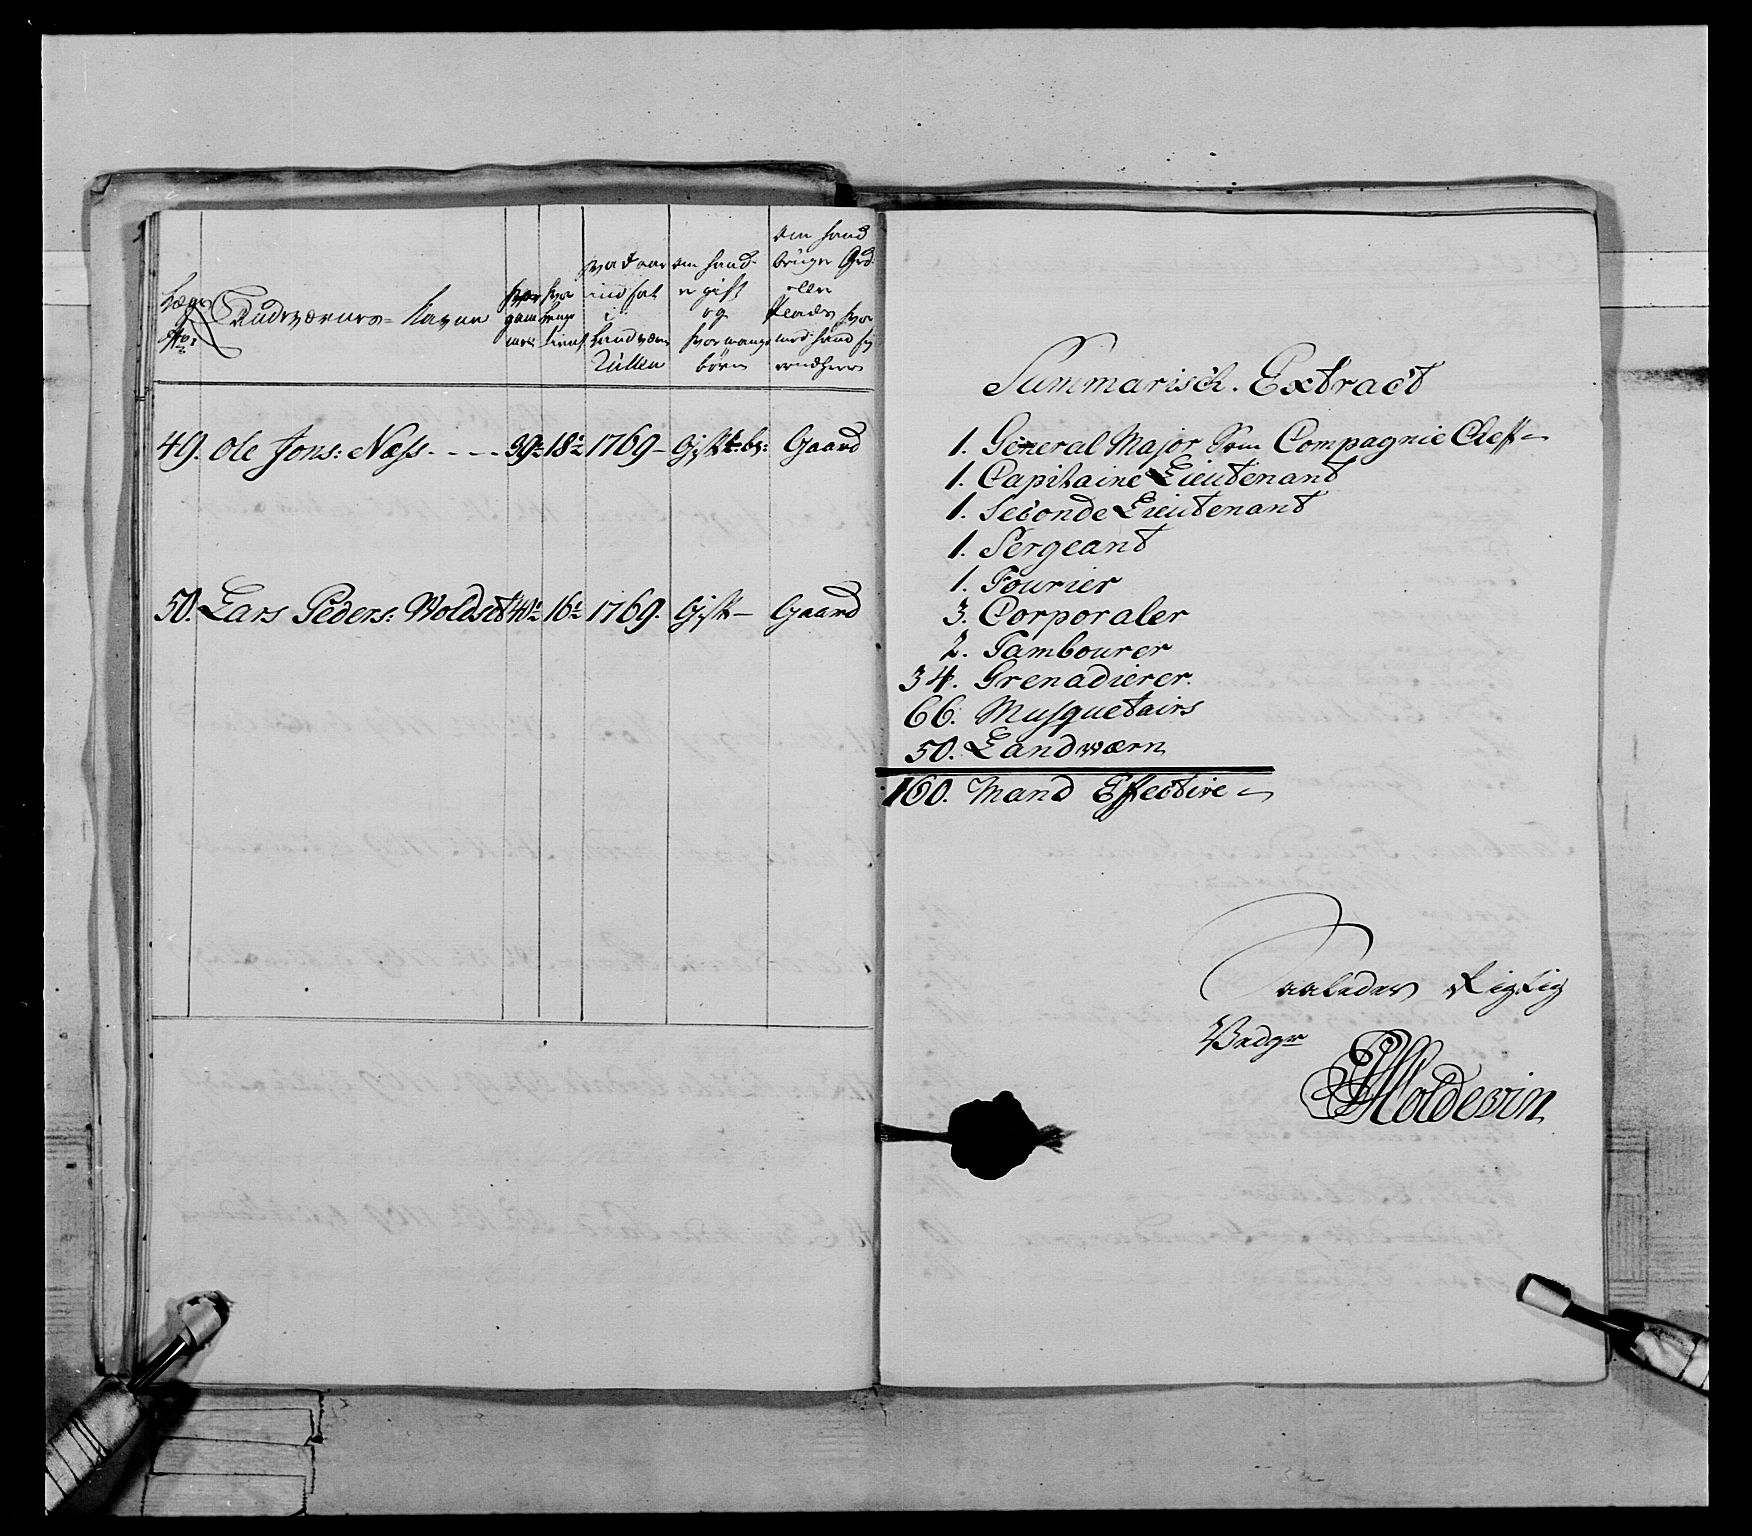 Lægs No:
Landværners Navne
hvor gammel
hvor længe tient
hvad aar indsat i Landværn Rullen
om hand er gift og hvor mange børn
om hand bruger Grd. eller Plads hvor med hand sig ernæhrer
49. Ole Jons: Næss - - - - 39: 18: 1769 - Gift br: Gaard
50. Lars Peders: Woldset 41: 16: 1769. Gift - Gaard
Summarisch. Extract
1. General Major Som Compagnie Chef
1. Capitaine Lieutenant
1. Seconde Lieutenant
1. Sergeant
1. Fourier
3. Corporaler
2. Tambourer
34. Grenadierer.
66. Musquetairs
50. Landwærn
160. Mand Effective
Saaledes Rigtig
Holdewin